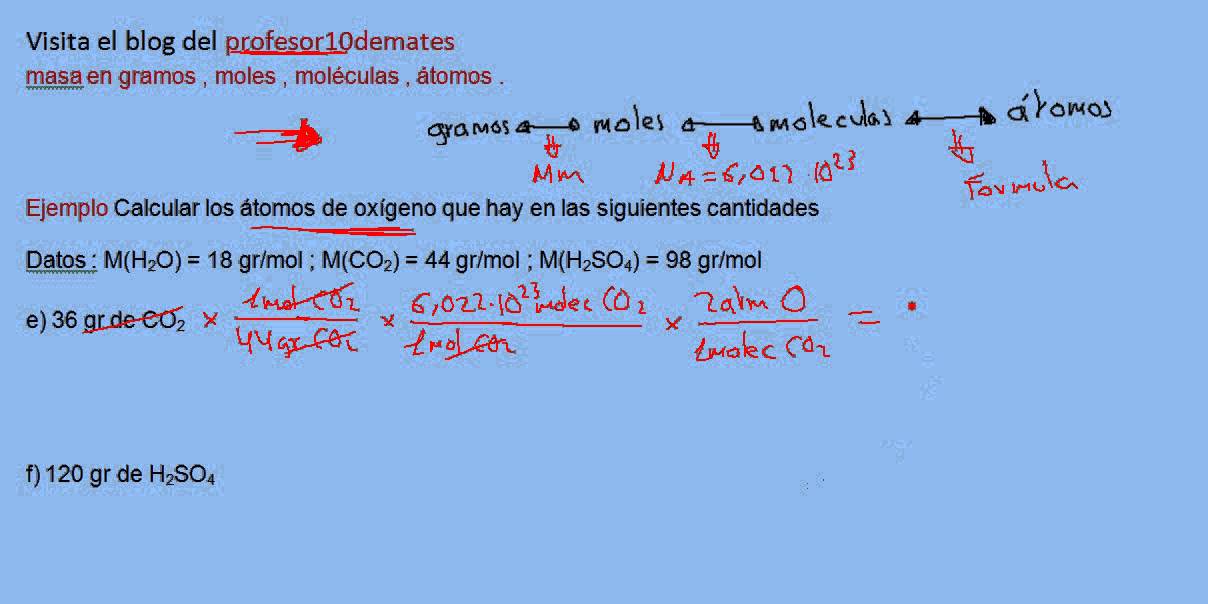 Visita el blog del profesor10demates
masa en gramos , moles , moléculas , átomos .
gramos ↔ moles ↔ moleculas ↔ átomos
Mm NA = 6,022 · 10²³ Formula
Ejemplo Calcular los átomos de oxígeno que hay en las siguientes cantidades
Datos : M(H₂O) = 18 gr/mol ; M(CO₂) = 44 gr/mol ; M(H₂SO₄) = 98 gr/mol
e) 36 gr de CO₂ × 1 mol CO₂ / 44 gr CO₂ × 6,022·10²³ molec CO₂ / 1 mol CO₂ × 2 atm O / 1 molec CO₂ =
f) 120 gr de H₂SO₄